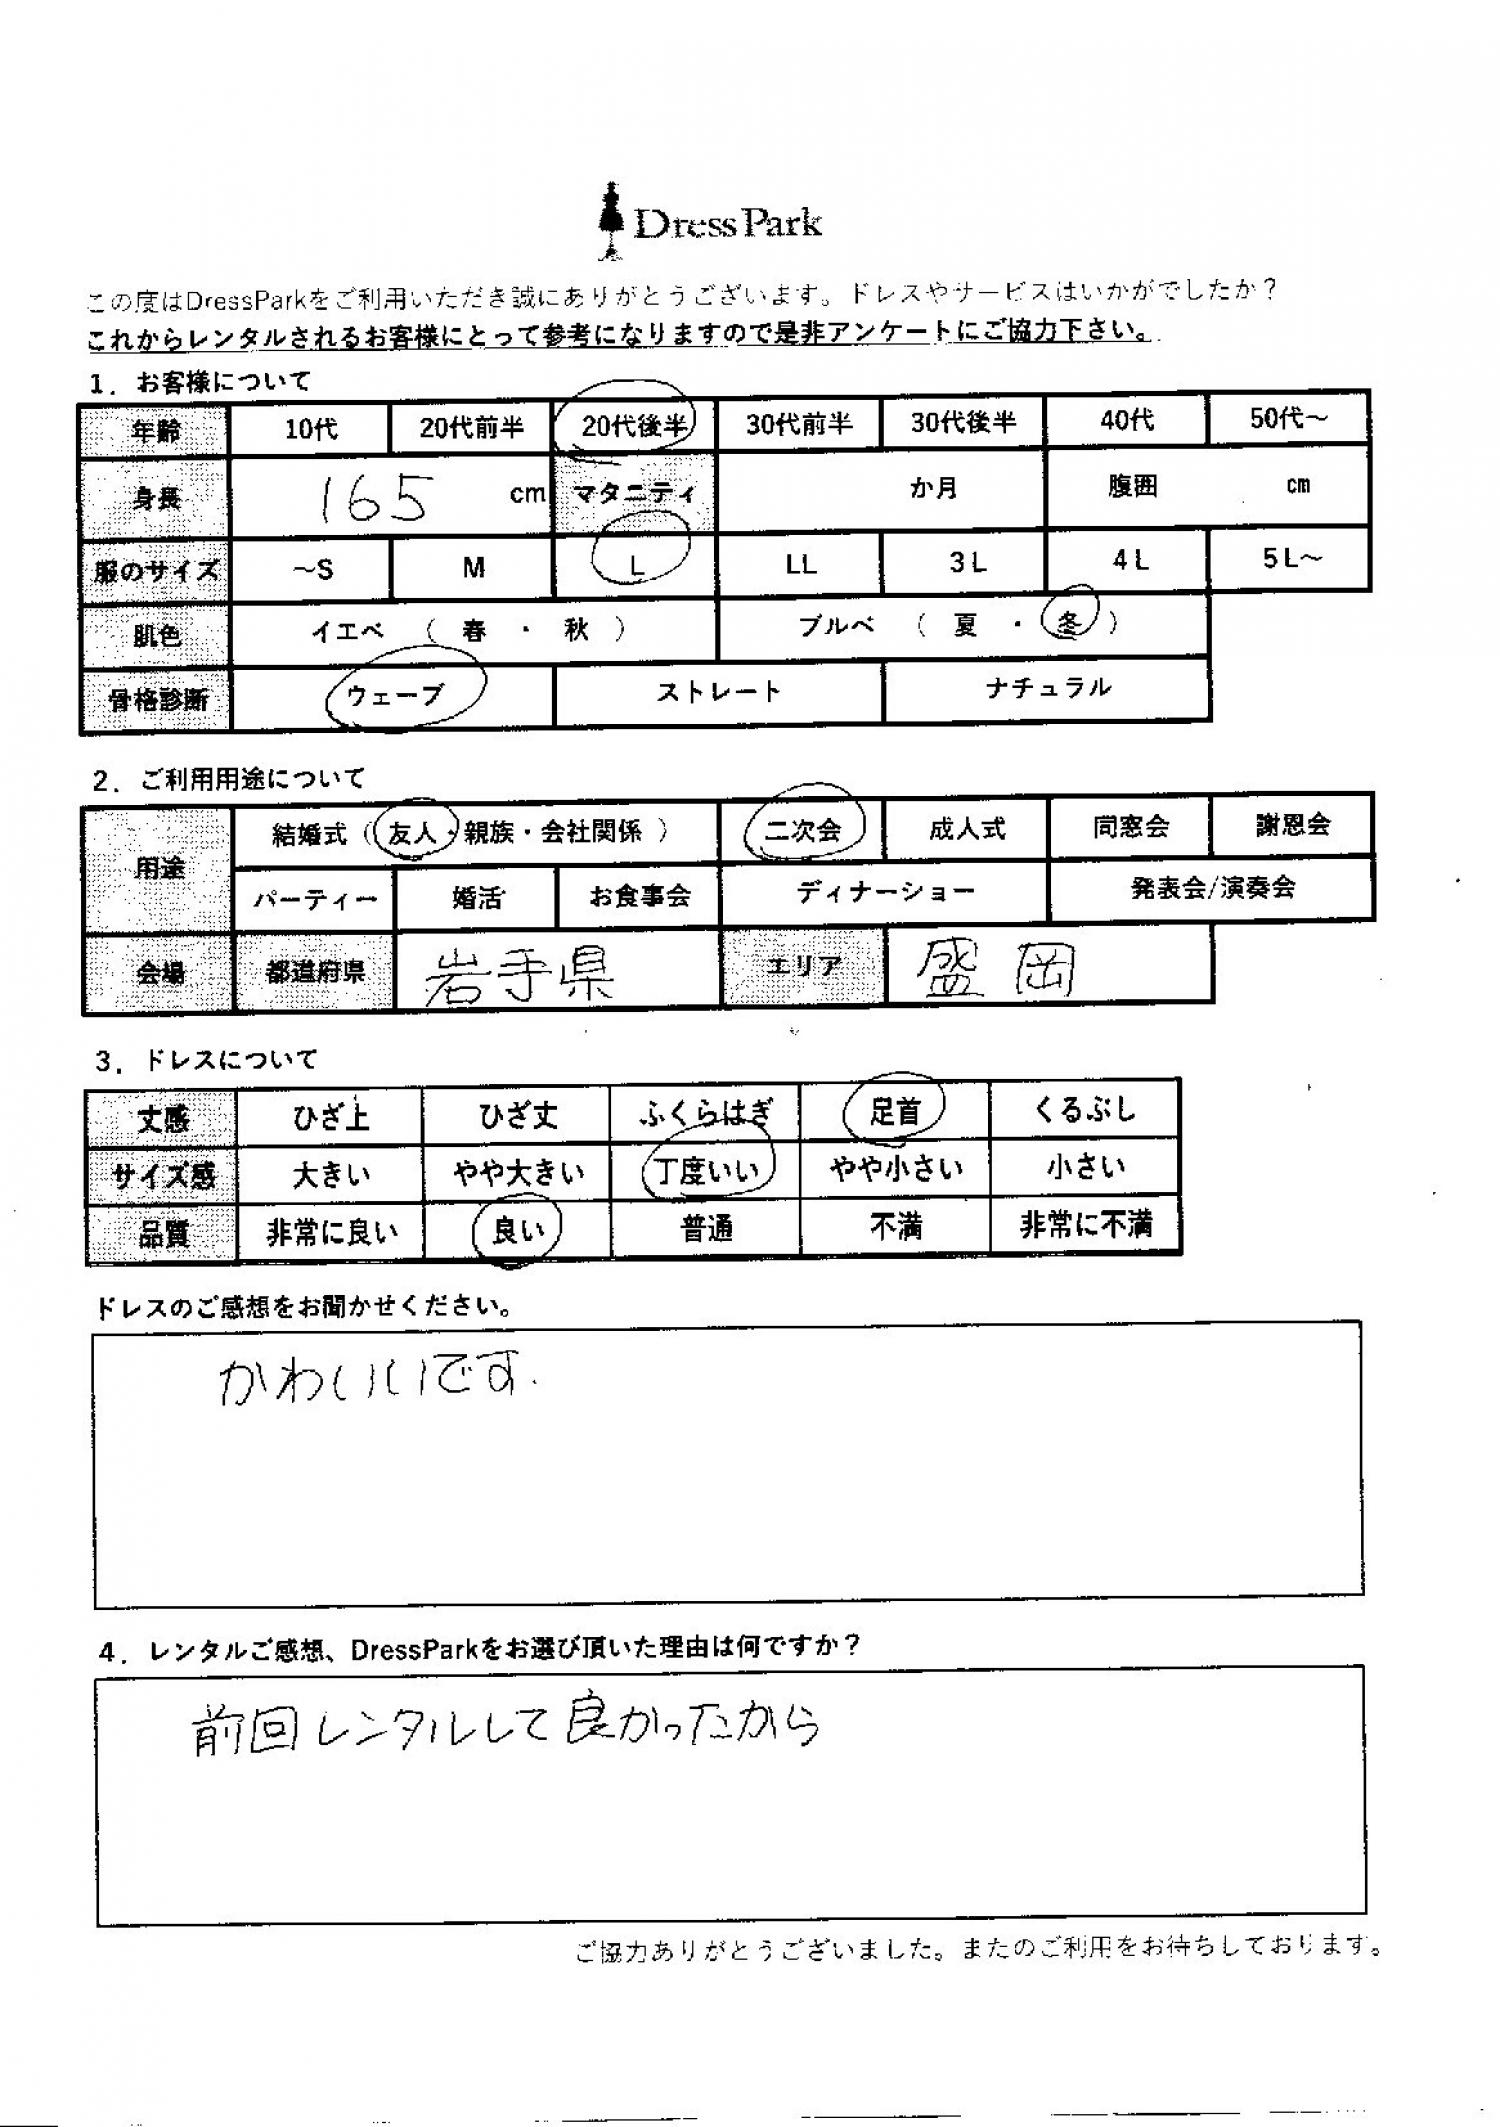 DressPark
この度はDressParkをご利用いただき誠にありがとうございます。ドレスやサービスはいかがでしたか？
これからレンタルされるお客様にとって参考になりますので是非アンケートにご協力下さい。
1．お客様について
年齢 10代 20代前半 20代後半 30代前半 30代後半 40代 50代～
身長 165 cm マタニティ か月 腹囲 cm
服のサイズ ～S M L LL 3L 4L 5L～
肌色 イエベ （ 春 ・ 秋 ） ブルベ （ 夏 ・ 冬 ）
骨格診断 ウェーブ ストレート ナチュラル
2．ご利用用途について
用途 結婚式（友人・親族・会社関係 ） 二次会 成人式 同窓会 謝恩会
パーティー 婚活 お食事会 ディナーショー 発表会/演奏会
会場 都道府県 岩手県 エリア 盛岡
3．ドレスについて
丈感 ひざ上 ひざ丈 ふくらはぎ 足首 くるぶし
サイズ感 大きい やや大きい 丁度いい やや小さい 小さい
品質 非常に良い 良い 普通 不満 非常に不満
ドレスのご感想をお聞かせください。
かわいいです.
4．レンタルご感想、DressParkをお選び頂いた理由は何ですか？
前回レンタルして良かったから
ご協力ありがとうございました。またのご利用をお待ちしております。